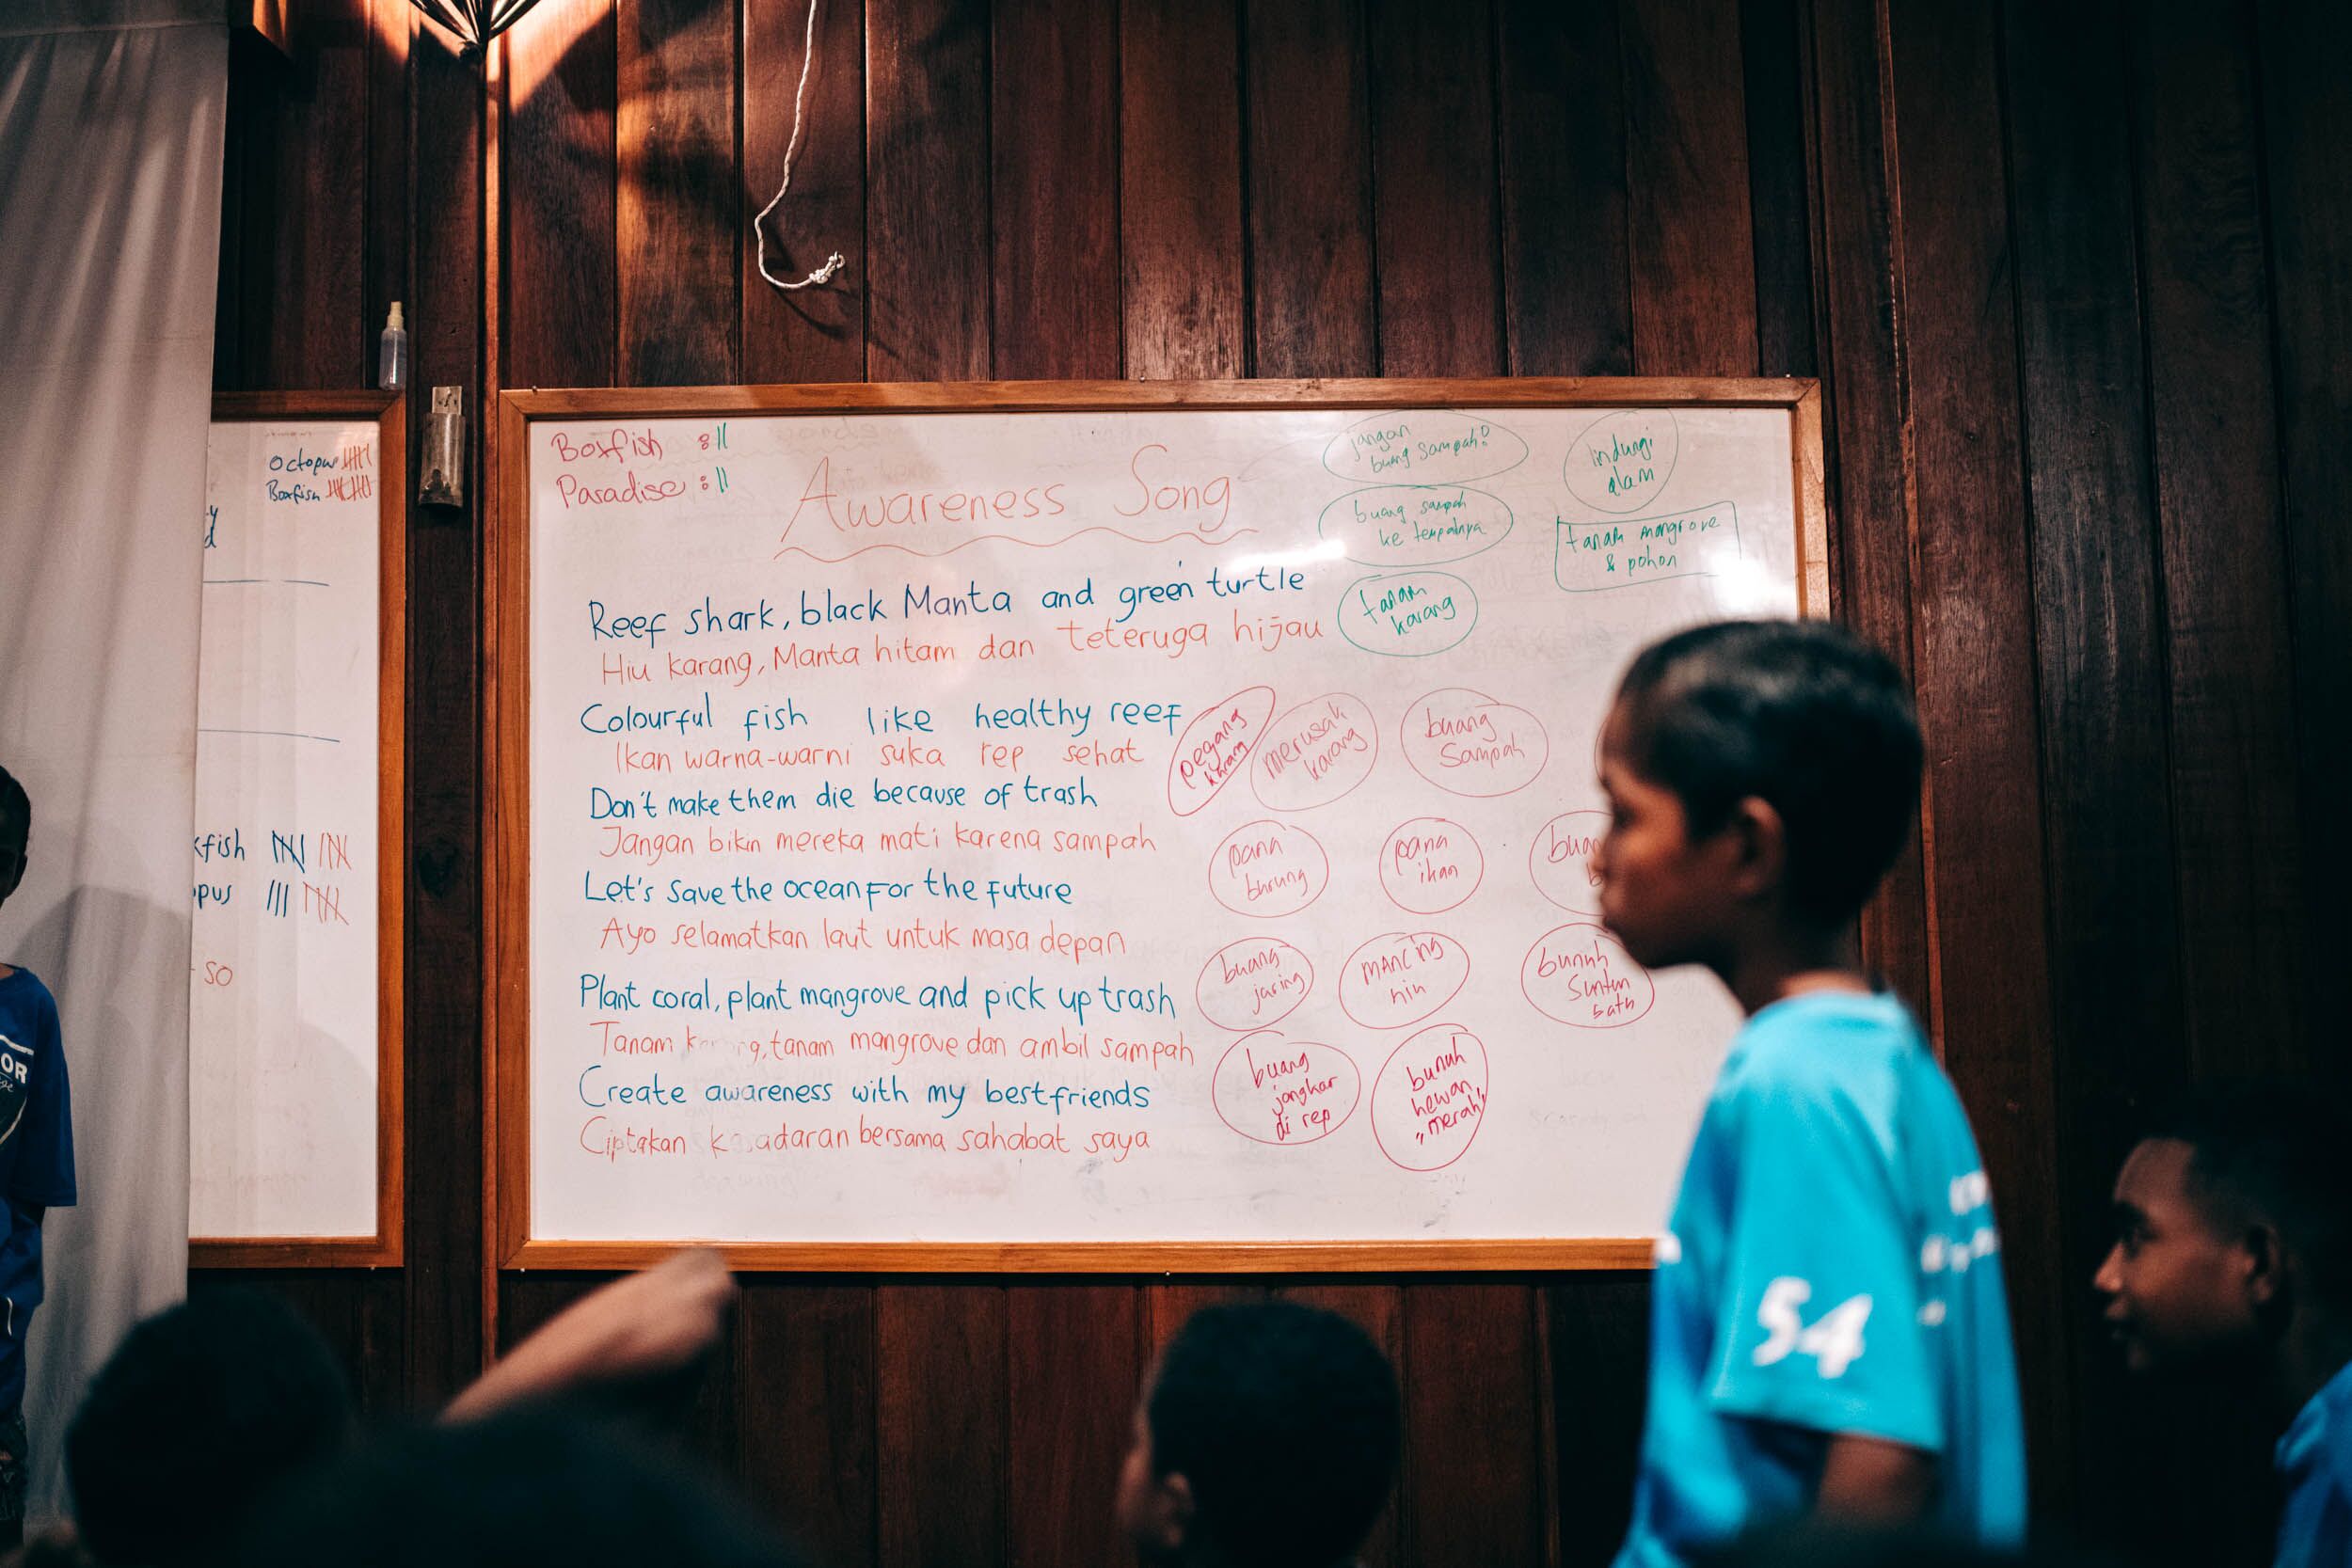 Octopus
Boxfish
kfish
pus
so
OR
Boxfish :||
Paradise :||
Awareness Song
Reef shark, black Manta and green turtle
Hiu karang, Manta hitam dan teteruga hijau
Colourful fish like healthy reef
Ikan warna-warni suka rep sehat
Don't make them die because of trash
Jangan bikin mereka mati karena sampah
Let's save the ocean for the future
Ayo selamatkan laut untuk masa depan
Plant coral, plant mangrove and pick up trash
Tanam k g, tanam mangrove dan ambil sampah
Create awareness with my best friends
Ciptakan k sadaran bersama sahabat saya
jangan
buang sampah!
lindungi
alam
buang sampah
ke tempatnya
tanam mangrove
& pohon
tanam
karang
pegang
karang
merusak
karang
buang
Sampah
pana
burung
pana
ikan
buan
b
buang
jaring
mancing
hiu
bunuh
Suntun
satu
buang
jangkar
di rep
bunuh
hewan
"merah"
54